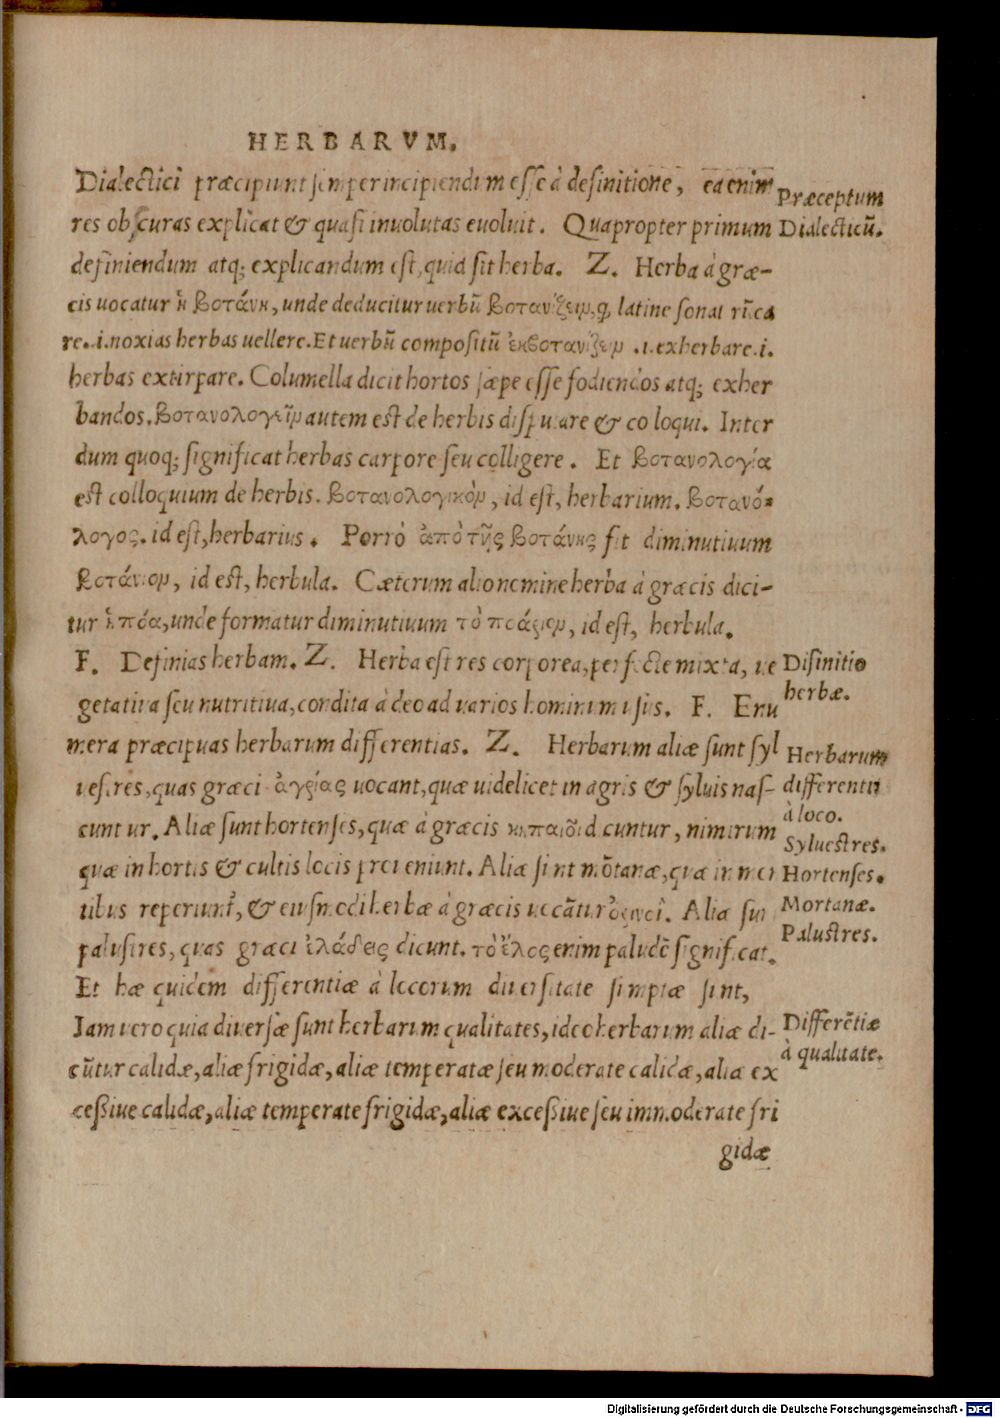 HERBARVM.
Dialectici præcipiunt semper incipiendum esse à definitione, ea enim
res obscuras explicat & quasi inuolutas euoluit. Quapropter primum
definiendum atq; explicandum est, quid sit herba. Z. Herba à græ-
cis uocatur ἡ βοτάνη, unde deducitur uerbũ βοτανίζειν, q, latine sonat rũca
re .i. noxias herbas uellere. Et uerbũ compositũ ἐκβοτανίζειν .i. exherbare .i.
herbas extirpare. Columella dicit hortos sæpe esse fodiendos atq; exher
bandos. βοτανολογεῖν autem est de herbis disputare & colloqui. Inter
dum quoq; significat herbas carpere seu colligere. Et βοτανολογία
est colloquium de herbis. βοτανολογικὸν, id est, herbarium. βοτανό-
λογος. id est, herbarius. Porrò ἀπὸ τῆς βοτάνης fit diminutiuum
βοτάνιον, id est, herbula. Cæterum alio nomine herba à græcis dici-
tur ἡ πόα, unde formatur diminutiuum τὸ ποάριον, id est, herbula.
F. Definias herbam. Z. Herba est res corporea, perfecte mixta, ue
getatiua seu nutritiua, condita à deo ad uarios hominum usus. F. Enu
mera præcipuas herbarum differentias. Z. Herbarum aliæ sunt syl
uestres, quas græci ἀγρίας uocant, quæ uidelicet in agris & syluis nas-
cuntur. Aliæ sunt hortenses, quæ à græcis κηπαῖοι dicuntur, nimirum
quæ in hortis & cultis locis proueniunt. Aliæ sunt mõtanæ, quæ in mon
tibus reperiunt̃, & eiusmodi herbæ à græcis uocãtur ὀρεινοί. Aliæ sun
palustres, quas græci ἑλώδεις dicunt. τὸ ἕλος enim paludẽ significat.
Et hæ quidem differentiæ à locorum diuersitate sumptæ sunt,
Iam uero quia diuersæ sunt herbarum qualitates, ideo herbarum aliæ di-
cũtur calidæ, aliæ frigidæ, aliæ temperatæ seu moderate calidæ, aliæ ex
cessiue calidæ, aliæ temperate frigidæ, aliæ excessiue seu immoderate fri
gidæ
Præceptum
Dialecticũ.
Difinitio
herbæ.
Herbarum
differentii
à loco.
Syluestres.
Hortenses.
Montanæ.
Palustres.
Differẽtiæ
à qualitate.
Digitalisierung gefördert durch die Deutsche Forschungsgemeinschaft - DFG